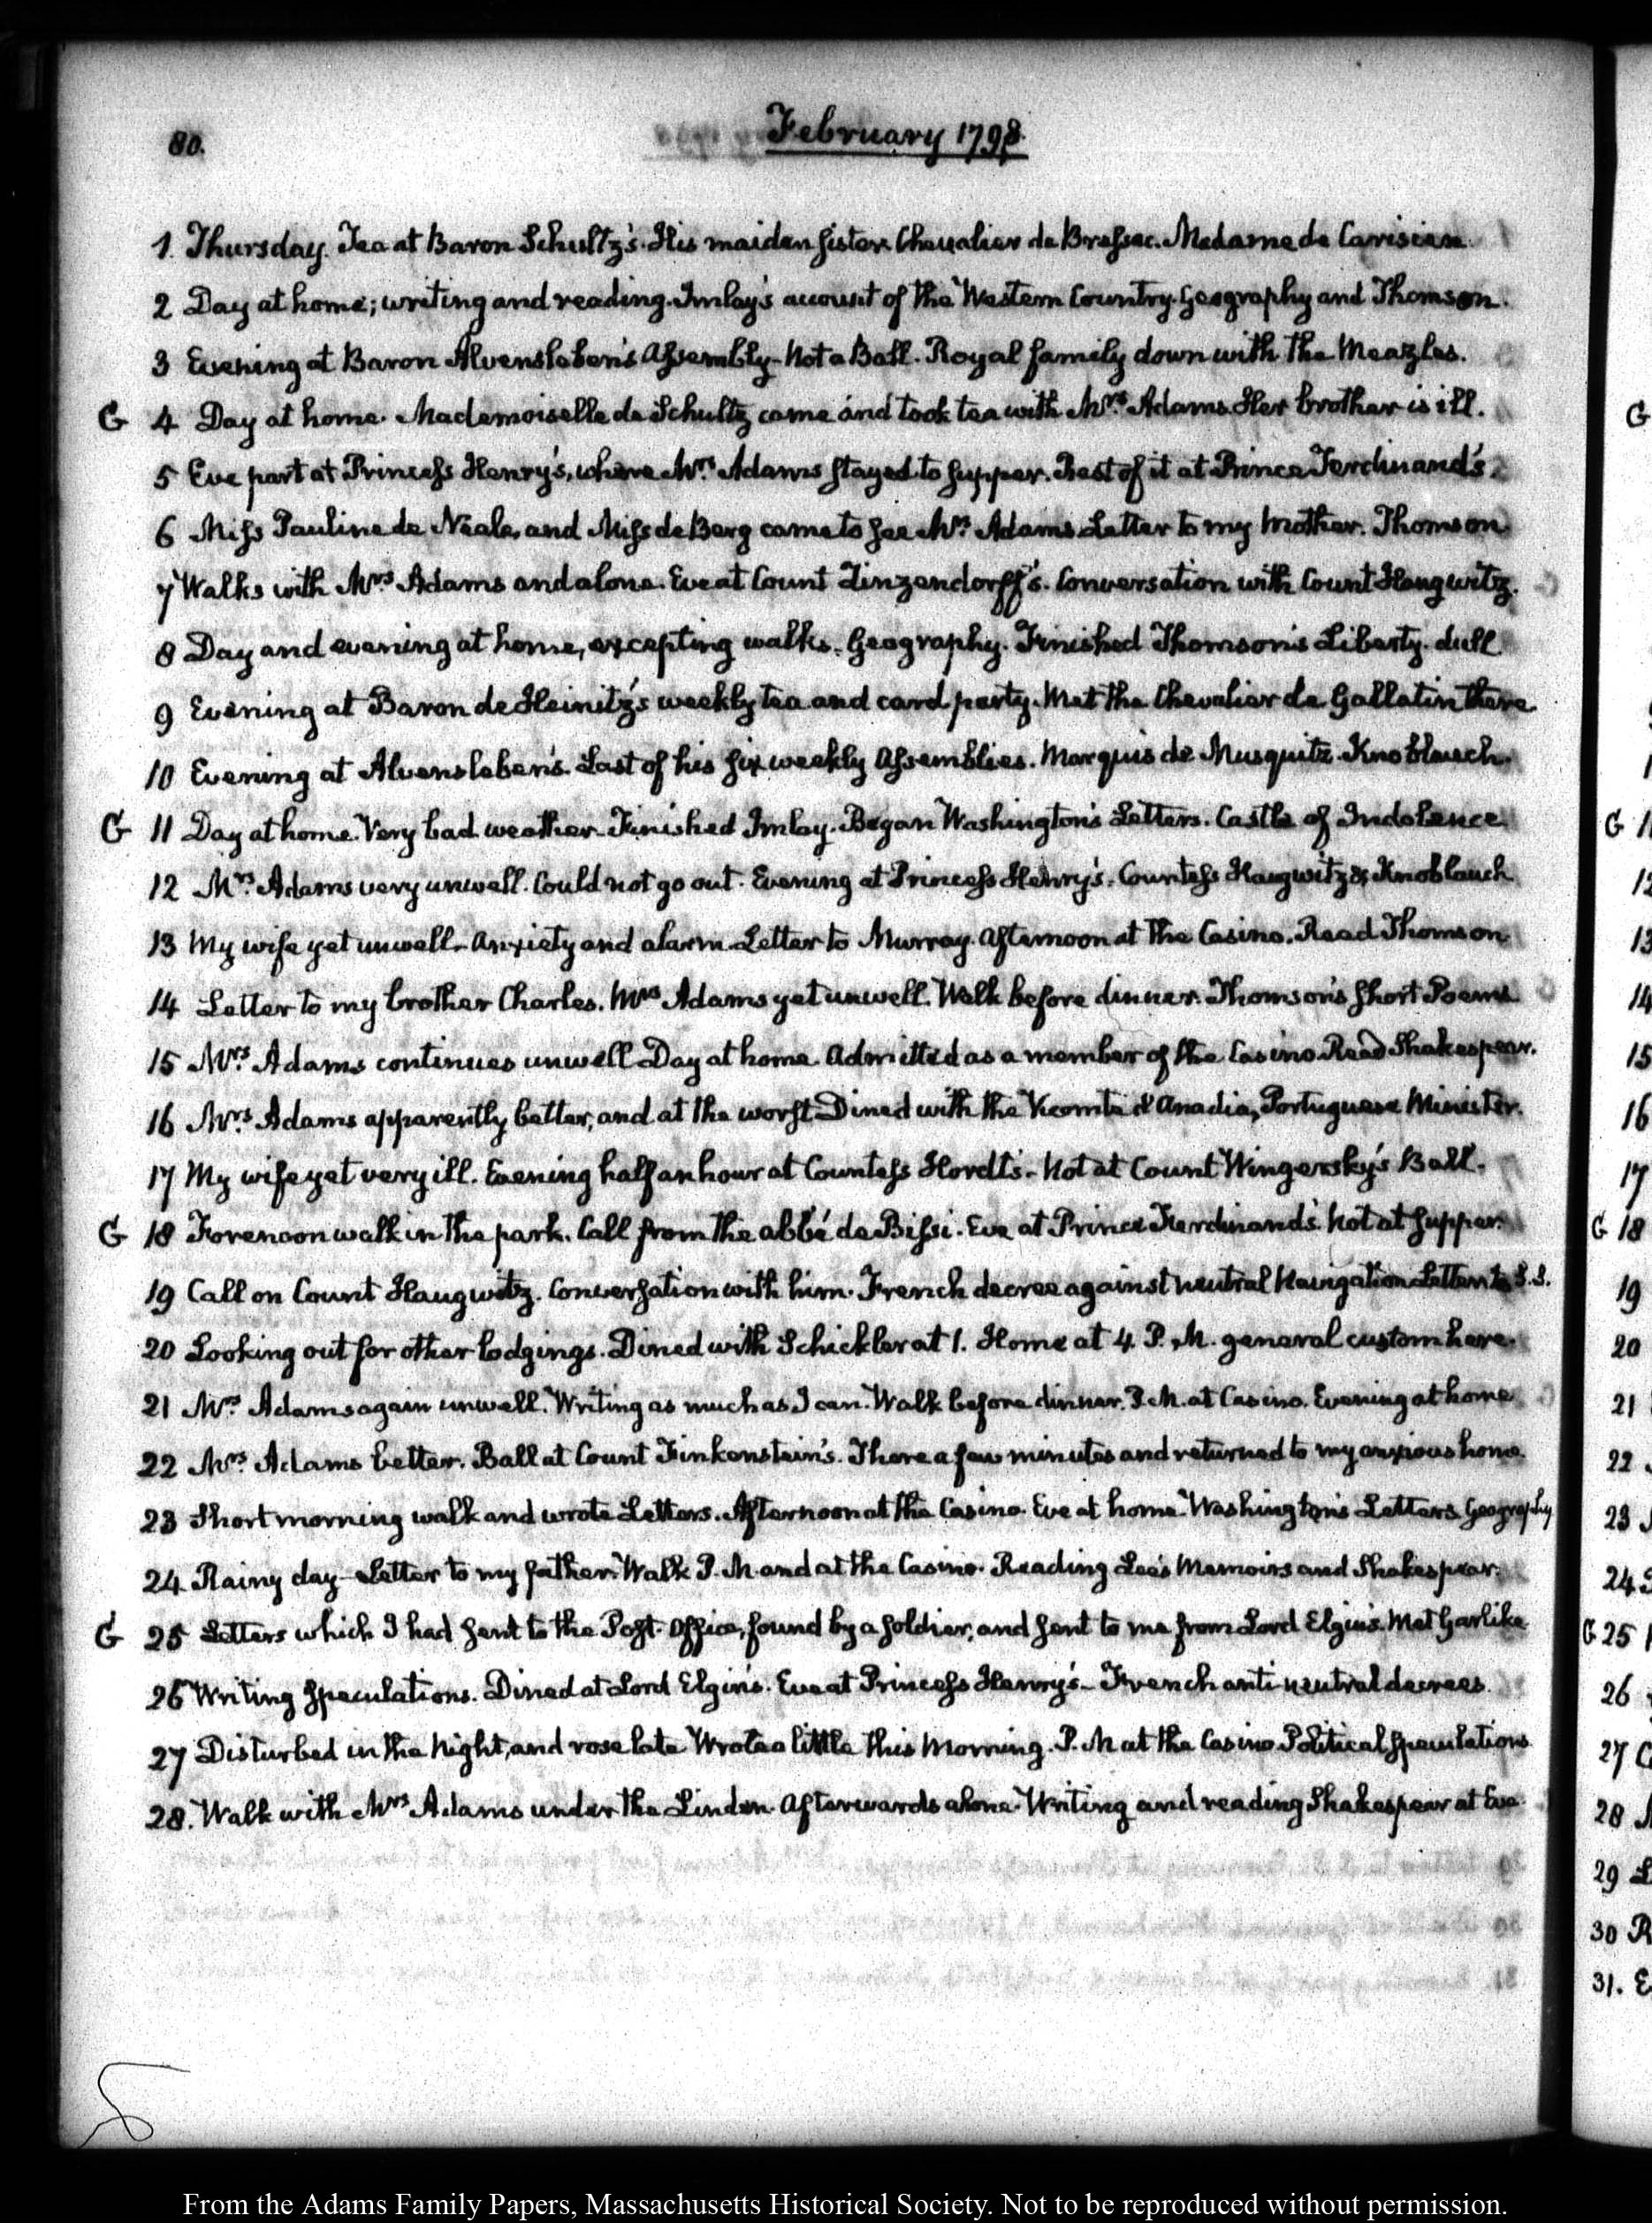 80.
February 1798.
1 Thursday. Tea at Baron Schultz's. His maiden sister. Chevalier de Brassac. Madame de Carisien.
2 Day at home; writing and reading. Imlay's account of the Western Country. Geography and Thomson.
3 Evening at Baron Alvensleben's Assembly. Not a Ball. Royal family down with the Meazles.
G 4 Day at home. Mademoiselle de Schultz came and took tea with Mrs. Adams. Her brother is ill.
5 Eve part at Princess Henry's, where Mrs. Adams stayed to supper. Rest of it at Prince Ferdinand's.
6 Miss Pauline de Neale, and Miss de Berg came to see Mrs. Adams. Letter to my Mother. Thomson
7 Walks with Mrs. Adams and alone. Eve at Count Zinzendorff's. Conversation with Count Haugwitz.
8 Day and evening at home, excepting walks. Geography. Finished Thomson's Liberty. dull
9 Evening at Baron de Heinitz's weekly tea and card party. Met the Chevalier de Gallatin there
10 Evening at Alvensleben's. Last of his six weekly Assemblies. Marquis de Musquitz. Knoblauch.
G 11 Day at home. Very bad weather. Finished Imlay. Began Washington's Letters. Castle of Indolence
12 Mrs. Adams very unwell. Could not go out. Evening at Princess Henry's. Countess Haugwitz & Knoblauch
13 My wife yet unwell. Anxiety and alarm. Letter to Murray. Afternoon at the Casino. Read Thomson
14 Letter to my brother Charles. Mrs Adams yet unwell. Walk before dinner. Thomson's short Poems
15 Mrs. Adams continues unwell. Day at home. Admitted as a member of the Casino. Read Shakespear.
16 Mrs. Adams apparently better, and at the worst. Dined with the Vicomte d'Anadia, Portuguese Minister.
17 My wife yet very ill. Evening half an hour at Countess Hordt's. Not at Count Wingersky's Ball.
G 18 Forenoon walk in the park. Call from the abbé de Bissi. Eve at Prince Ferdinand's. Not at supper.
19 Call on Count Haugwitz. Conversation with him. French decree against neutral Navigation. Letter to S.S.
20 Looking out for other lodgings. Dined with Schickler at 1. Home at 4. P. M. general custom here.
21 Mrs. Adams again unwell. Writing as much as I can. Walk before dinner. P. M. at Casino. Evening at home
22 Mrs. Adams better. Ball at Count Finkenstein's. There a few minutes and returned to my anxious home.
23 Short morning walk and wrote Letters. Afternoon at the Casino. Eve at home. Washington's Letters. Geography
24 Rainy day. Letter to my father. Walk P. M. and at the Casino. Reading Lee's Memoirs and Shakespear.
G 25 Letters which I had sent to the Post-Office, found by a soldier, and sent to me from Lord Elgin's. Met Garlike
26 Writing speculations. Dined at Lord Elgin's. Eve at Princess Henry's. French anti-neutral decrees.
27 Disturbed in the Night, and rose late. Wrote a little this Morning. P. M at the Casino. Political speculations
28. Walk with Mrs Adams under the Linden. Afterwards alone. Writing and reading Shakespear at Eve.
From the Adams Family Papers, Massachusetts Historical Society. Not to be reproduced without permission.